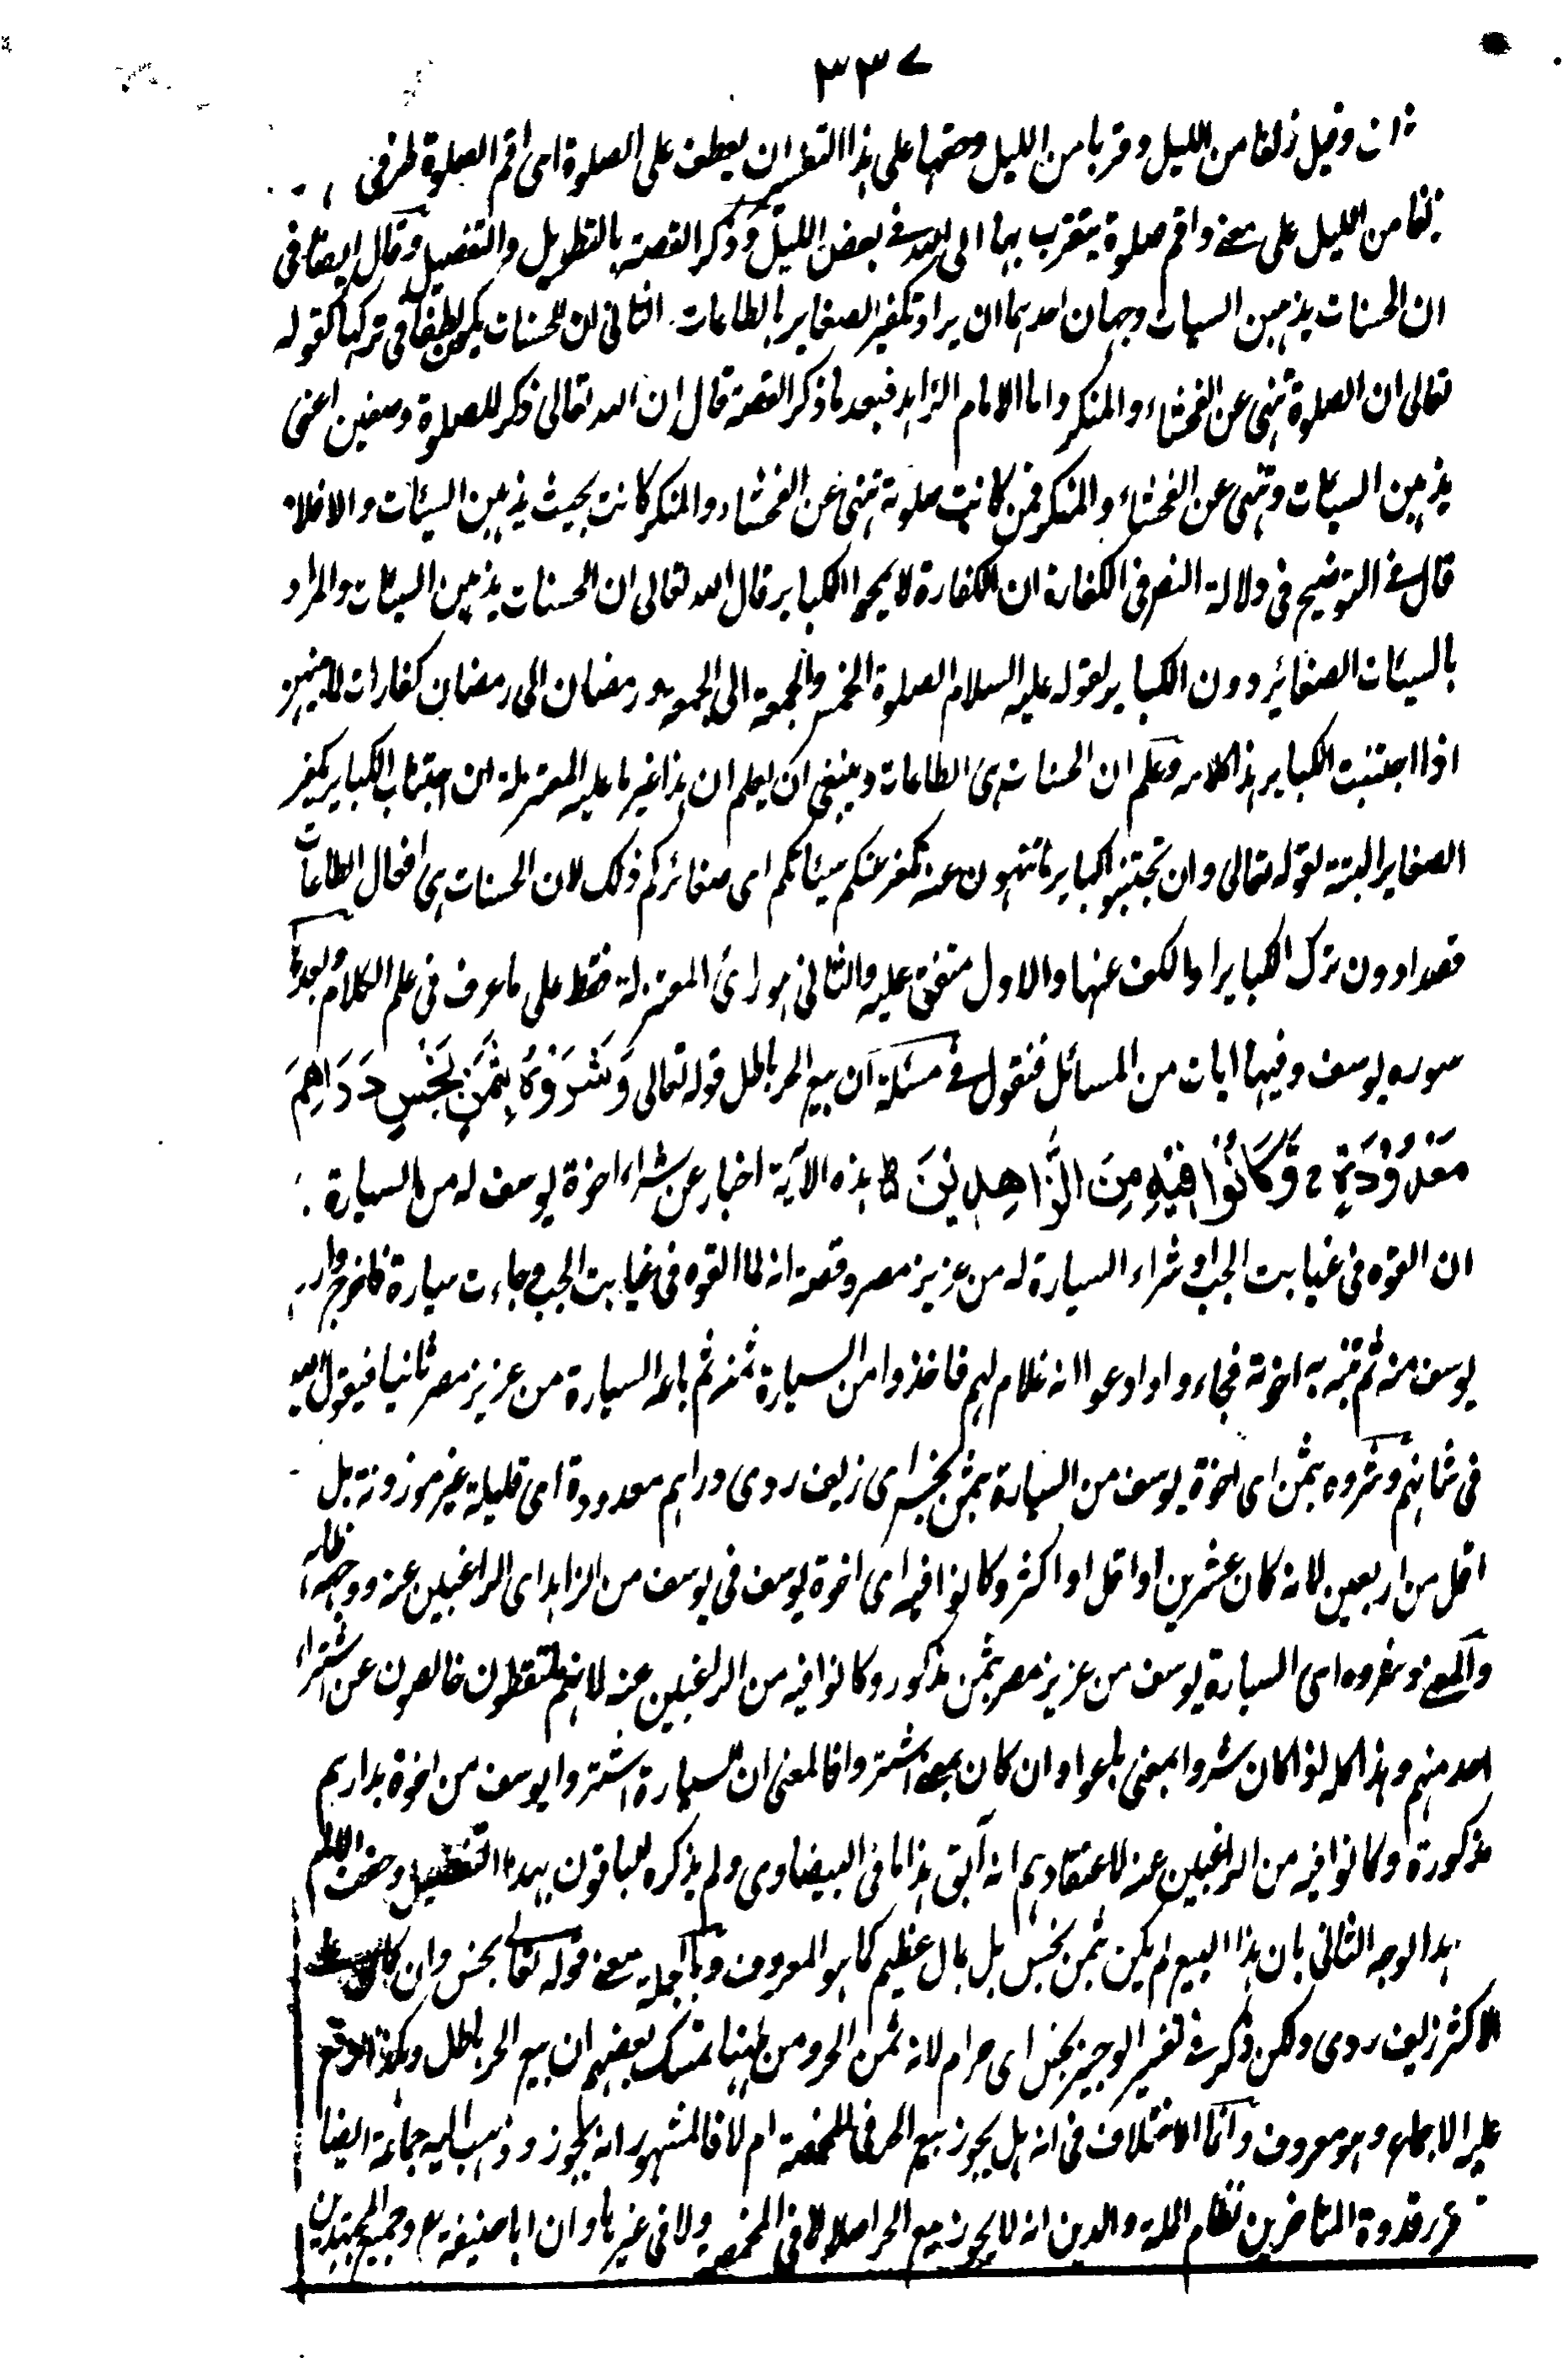 ٣٣٧
وقيل زلفا من الليل وقربا من الليل وحقها على هذا التفسير ان يعطف على الصلوة اى اقم الصلوة طرفى
زلفا من الليل على معنى واقم صلوة يتقرب بها الى الله فى بعض الليل وذكر القصة بالتطويل والتفصيل وقال ايضا فى
ان الحسنات يذهبن السيات وجهان احدهما ان يراد تكفير الصغاير بالطاعات الثانى ان الحسنات يكون لطفا فى تركها كقوله
تعالى ان الصلوة تنهى عن الفحشاء والمنكر واما الامام الزاهد فبعد ما ذكر القصة قال ان الله تعالى ذكر للصلوة وصفين اعنى
يذهبن السيئات وتنهى عن الفحشاء والمنكر فمن كانت صلوته تنهى عن الفحشاء والمنكر كانت بحيث يذهبن السيئات والا فلا
قال فى التوضيح فى دلالة النص فى الكفارة ان الكفارة لا يمحو الكباير قال الله تعالى ان الحسنات يذهبن السيئات والمراد
بالسيئات الصغائر دون الكباير لقوله عليه السلام الصلوة الخمس والجمعة الى الجمعة ورمضان الى رمضان كفارات لما بينهن
اذا اجتنبت الكباير هذا كلامه وعلم ان الحسنات هى الطاعات وينبغى ان يعلم ان هذا غير ما عليه المعتزلة ان اجتناب الكباير يكفر
الصغاير البتة لقوله تعالى وان تجتنبوا كباير ما تنهون عنه نكفر عنكم سيئاتكم اى صغائركم ذلك لان الحسنات هى افعال الطاعات
قصدا دون ترك الكباير او الكف عنها والاول متفق عليه والثانى هو رائ المعتزلة فقط على ما عرف فى علم الكلام وبعدها
سوره يوسف وفيها ايات من المسائل فنقول فى مسئلة ان بيع الحر باطل قوله تعالى وَشَرَوْهُ بِثَمَنٍ بَخْسٍ دَرَاهِمَ
مَعْدُوْدَةٍ وَكَانُوْا فِيْهِ مِنَ الزَّاهِدِيْنَ هذه الآية اخبار عن شراء اخوة يوسف له من السيارة
ان القوه فى غيابت الجب او شراء السيارة له من عزيز مصر وقصته انه لما القوه فى غيابت الجب وجاءت سيارة فاخرج وارد
يوسف منه ثم تنبه به اخوته فجاءوا وادعوا انه غلام لهم فاخذوا من السيارة ثمنه ثم باعه السيارة من عزيز مصر ثانيا فيقول الله
فى شانهم وشروه بثمن اى اخوة يوسف من السيارة بثمن بخس اى زيف ردى دراهم معدودة اى قليلة غير موزونة بل
اقل من اربعين لانه كان عشرين او اقل او اكثر وكانوا فيه اى اخوة يوسف فى يوسف من الزاهد اى الراغبين عنه ووجهه ظاهر
والمعنى وشروه اى السيارة يوسف من عزيز مصر بثمن مذكور وكانوا فيه من الراغبين عنه لانهم ملتقطون خالصون عن اشتراء
احد منهم وهذا كله لو كان شروا بمعنى باعوا وان كان بمعنى اشتروا فالمعنى ان السيارة اشتروا يوسف من اخوة بدارهم
مذكورة وكانوا فيه من الراغبين عنه لاعتقادهم انه آبق هذا ما فى البيضاوى ولم يذكره الباقون بهذا التفصيل وضعف
هذا لوجه الثانى بان هذا البيع لم يكن بثمن بخس بل بمال عظيم كما هو المعروف وبالجملة معنى قوله تعالى بخس وان كان
الاكثر زيف ردى ولكن ذكر فى تفسير الوجيز بخس اى حرام لانه ثمن الحر ومن ههنا تمسك بعضهم ان بيع الحر باطل وهكذا وقع
عليه الاجماع وهو معروف وانما الاختلاف فى انه هل يجوز بيع الحر فى المخمصة ام لا فالمشهور انه يجوز وذهب اليه جماعة ايضا
قدوة المتاخرين نظام الملة والدين انه لا يجوز بيع الحر اصلا لا فى المخمصه ولا فى غيرها وان ابا حنيفة رح وجميع المجتهدين